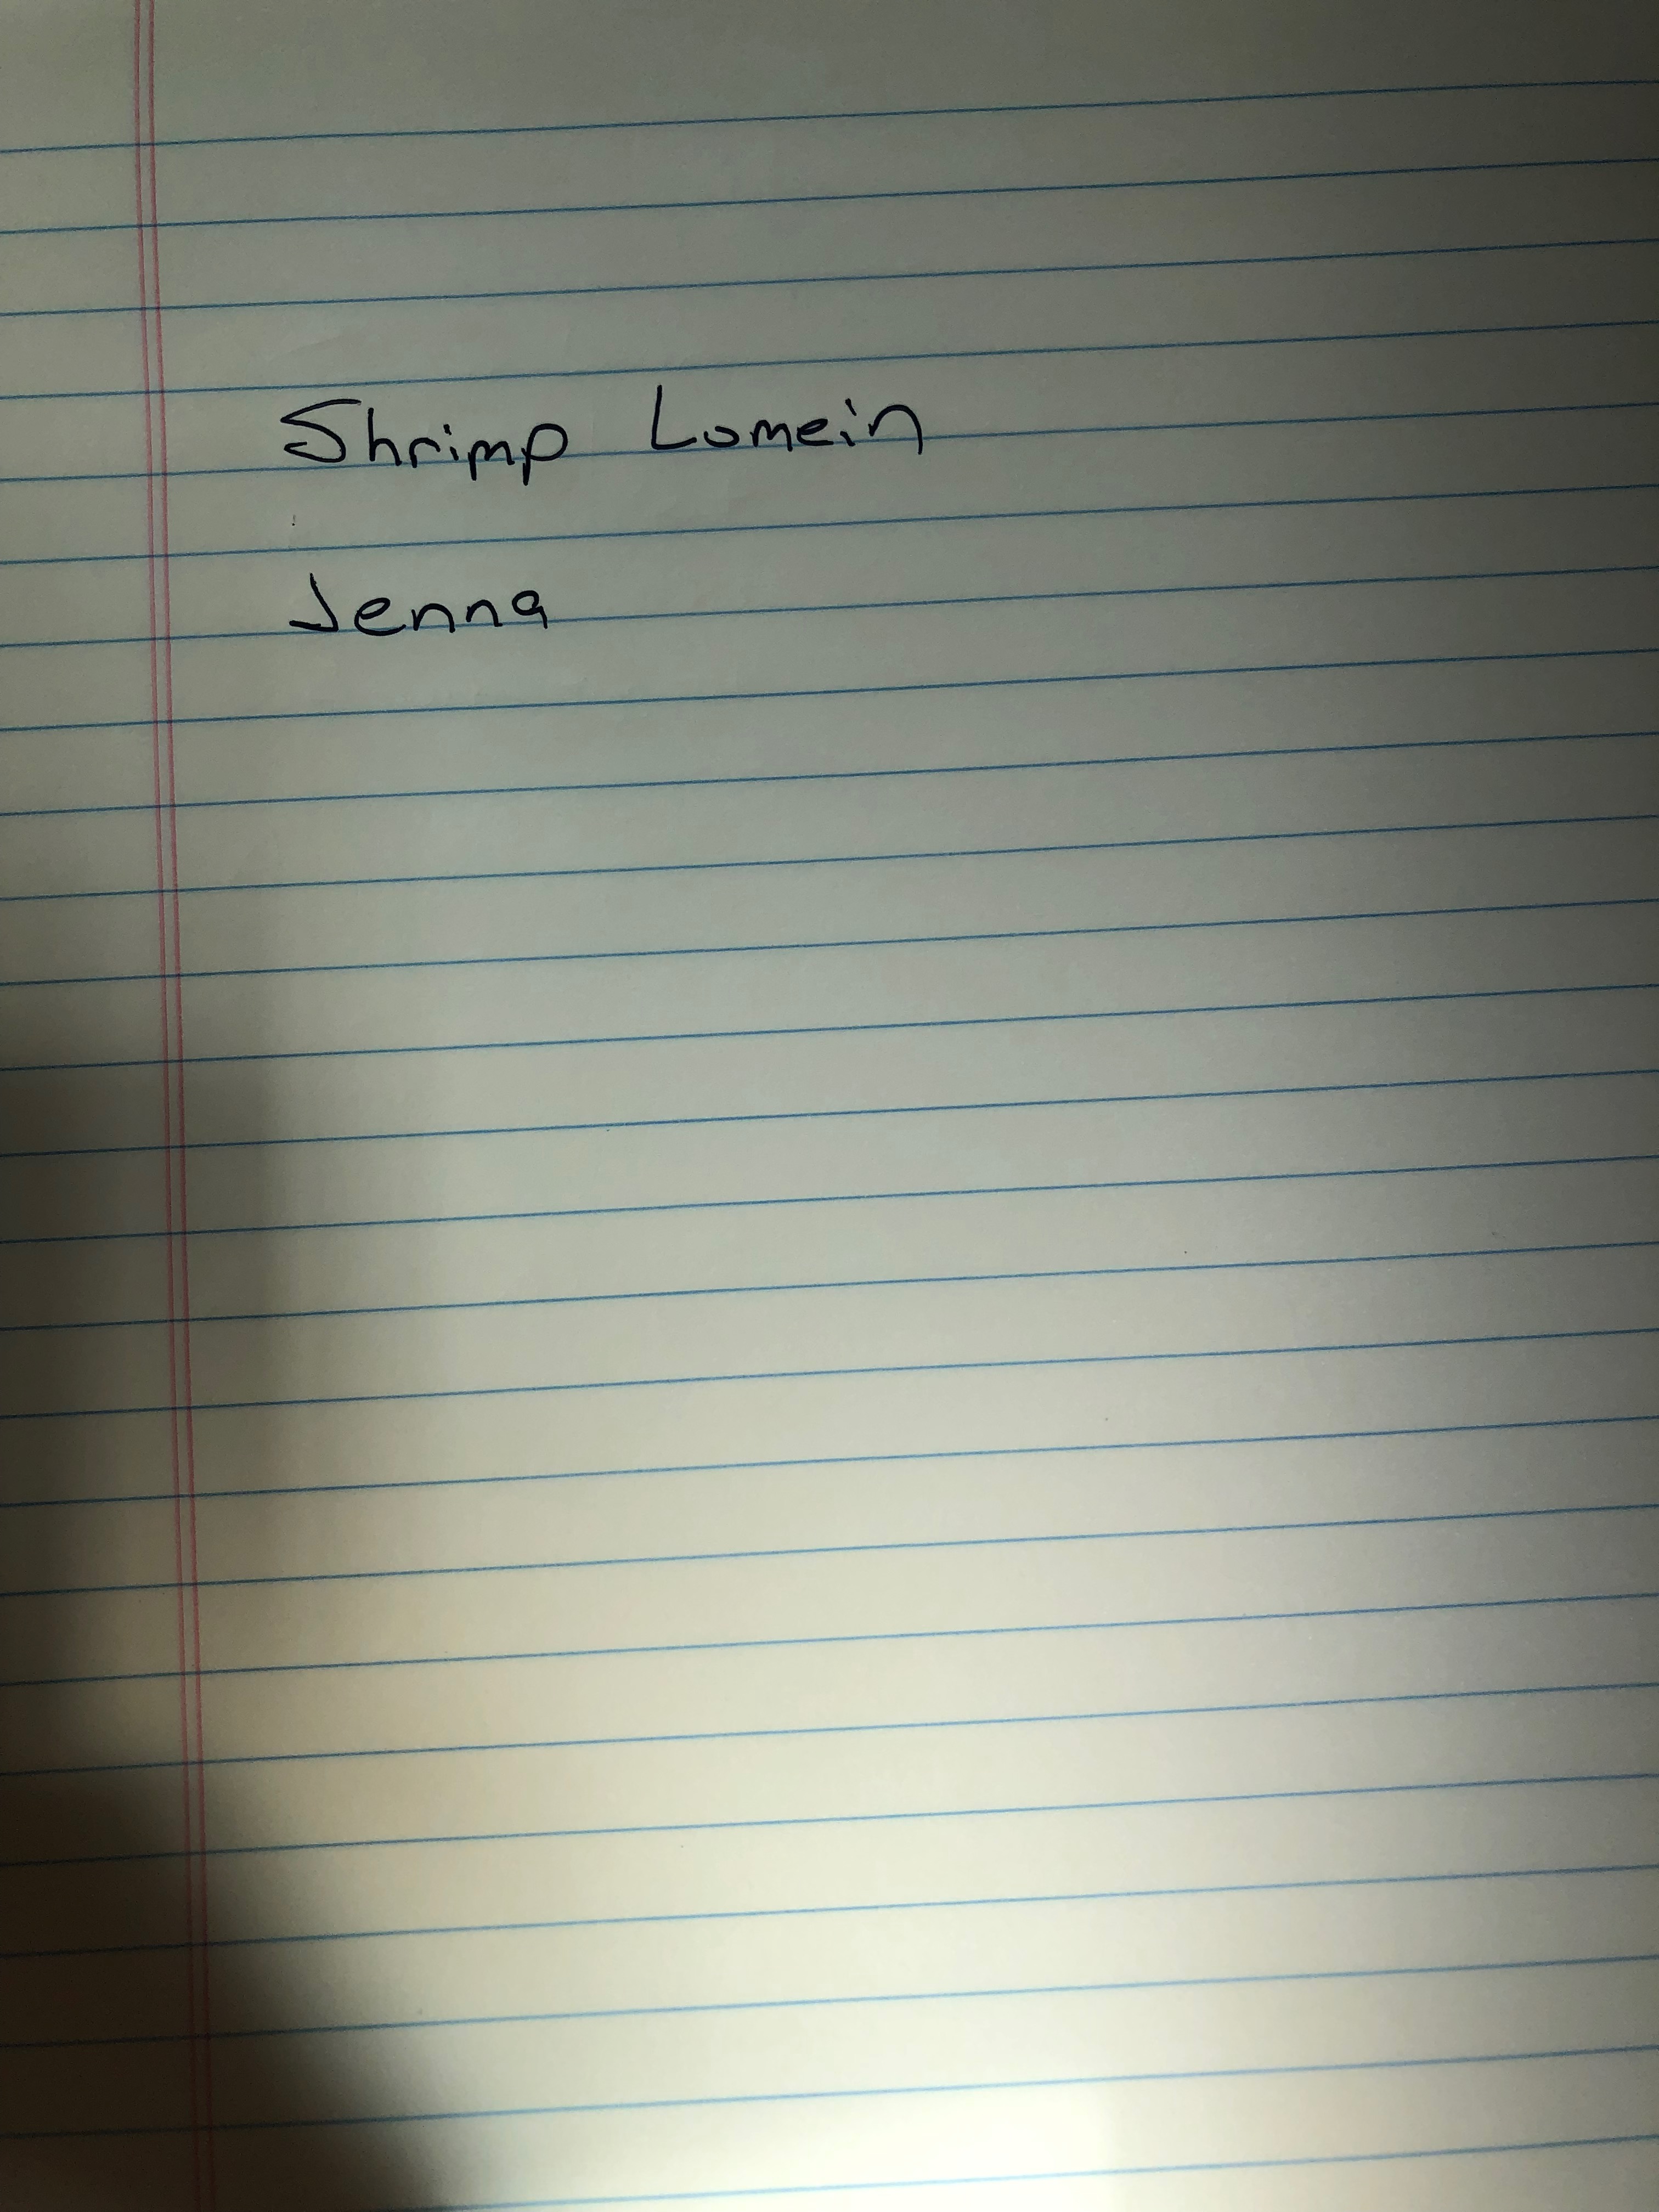 Shrimp Lomein
Jenna